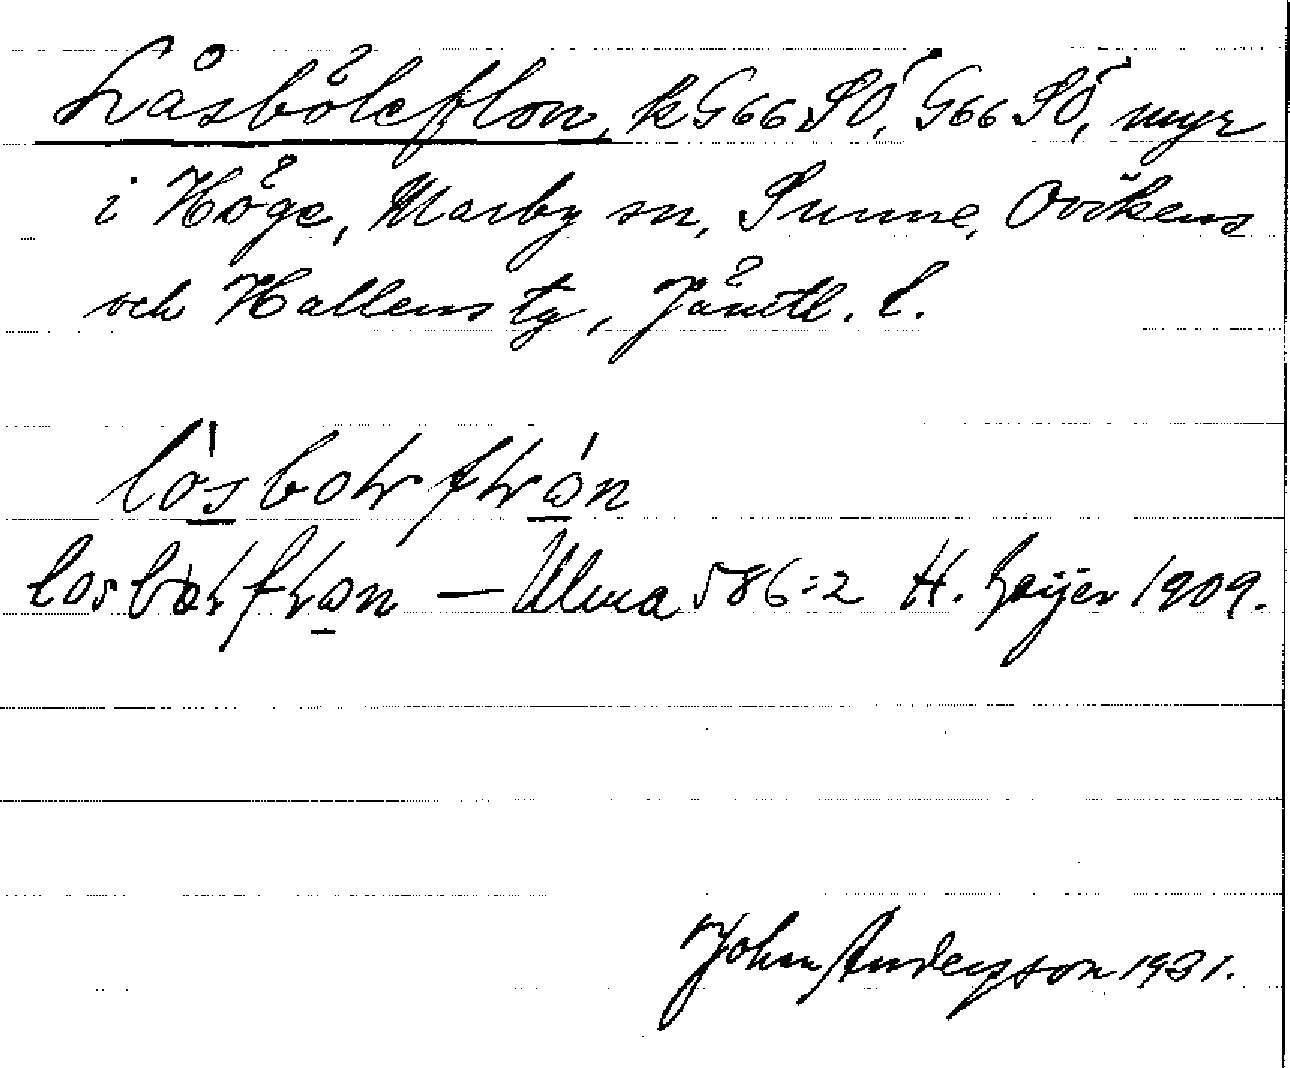 Låsböleflon, k G66 SÖ, G66 SÖ, myr
i Höge, Marby sn, Sunne, Ovikens
och Hallens tg, Jämtl. l.
lósbolrflrón
losbolrflron — Ulma 586:2 H. Geijer 1909.
John Andersson 1931.